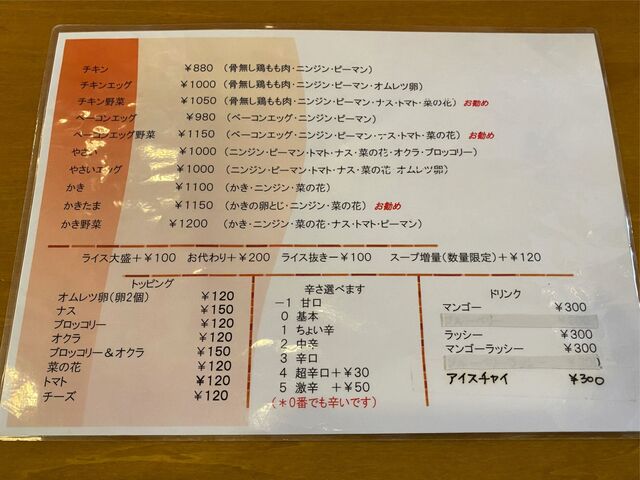 チキン ￥880 (骨無し鶏もも肉・ニンジン・ピーマン)
チキンエッグ ￥1000 (骨無し鶏もも肉・ニンジン・ピーマン・オムレツ卵)
チキン野菜 ￥1050 (骨無し鶏もも肉・ニンジン・ピーマン・ナス・トマト・菜の花) お勧め
ベーコンエッグ ￥980 (ベーコンエッグ・ニンジン・ピーマン)
ベーコンエッグ野菜 ￥1150 (ベーコンエッグ・ニンジン・ピーマン・ナス・トマト・菜の花) お勧め
やさい ￥1000 (ニンジン・ピーマン・トマト・ナス・菜の花・オクラ・ブロッコリー)
やさいエッグ ￥1000 (ニンジン・ピーマン・トマト・ナス・菜の花 オムレツ卵)
かき ￥1100 (かき・ニンジン・菜の花)
かきたま ￥1150 (かきの卵とじ・ニンジン・菜の花) お勧め
かき野菜 ￥1200 (かき・ニンジン・菜の花・ナス・トマト・ピーマン)
ライス大盛＋￥100 お代わり＋￥200 ライス抜きー￥100 スープ増量(数量限定)＋￥120
トッピング
オムレツ卵(卵2個) ￥120
ナス ￥150
ブロッコリー ￥120
オクラ ￥120
ブロッコリー＆オクラ ￥150
菜の花 ￥120
トマト ￥120
チーズ ￥120
辛さ選べます
－1 甘口
0 基本
1 ちょい辛
2 中辛
3 辛口
4 超辛口＋￥30
5 激辛 ＋￥50
(＊0番でも辛いです)
ドリンク
マンゴー ￥300
ラッシー ￥300
マンゴーラッシー ￥300
アイスチャイ ￥300